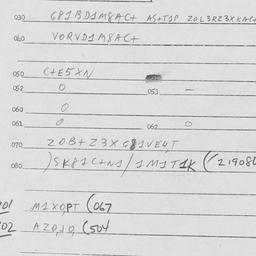 030 G81BD1M8AC+ AS+T1P 20L3R23XKAC+
040 VORVD1M8AC+
050 C+E5XN
052 0 053 -
060 0
061 0 062 0
070 20B+Z3X G81VE4T
080 )SK81C+N1/1M1T1K (21908
01 M1XOPT (067
02 AZ0,10, (504